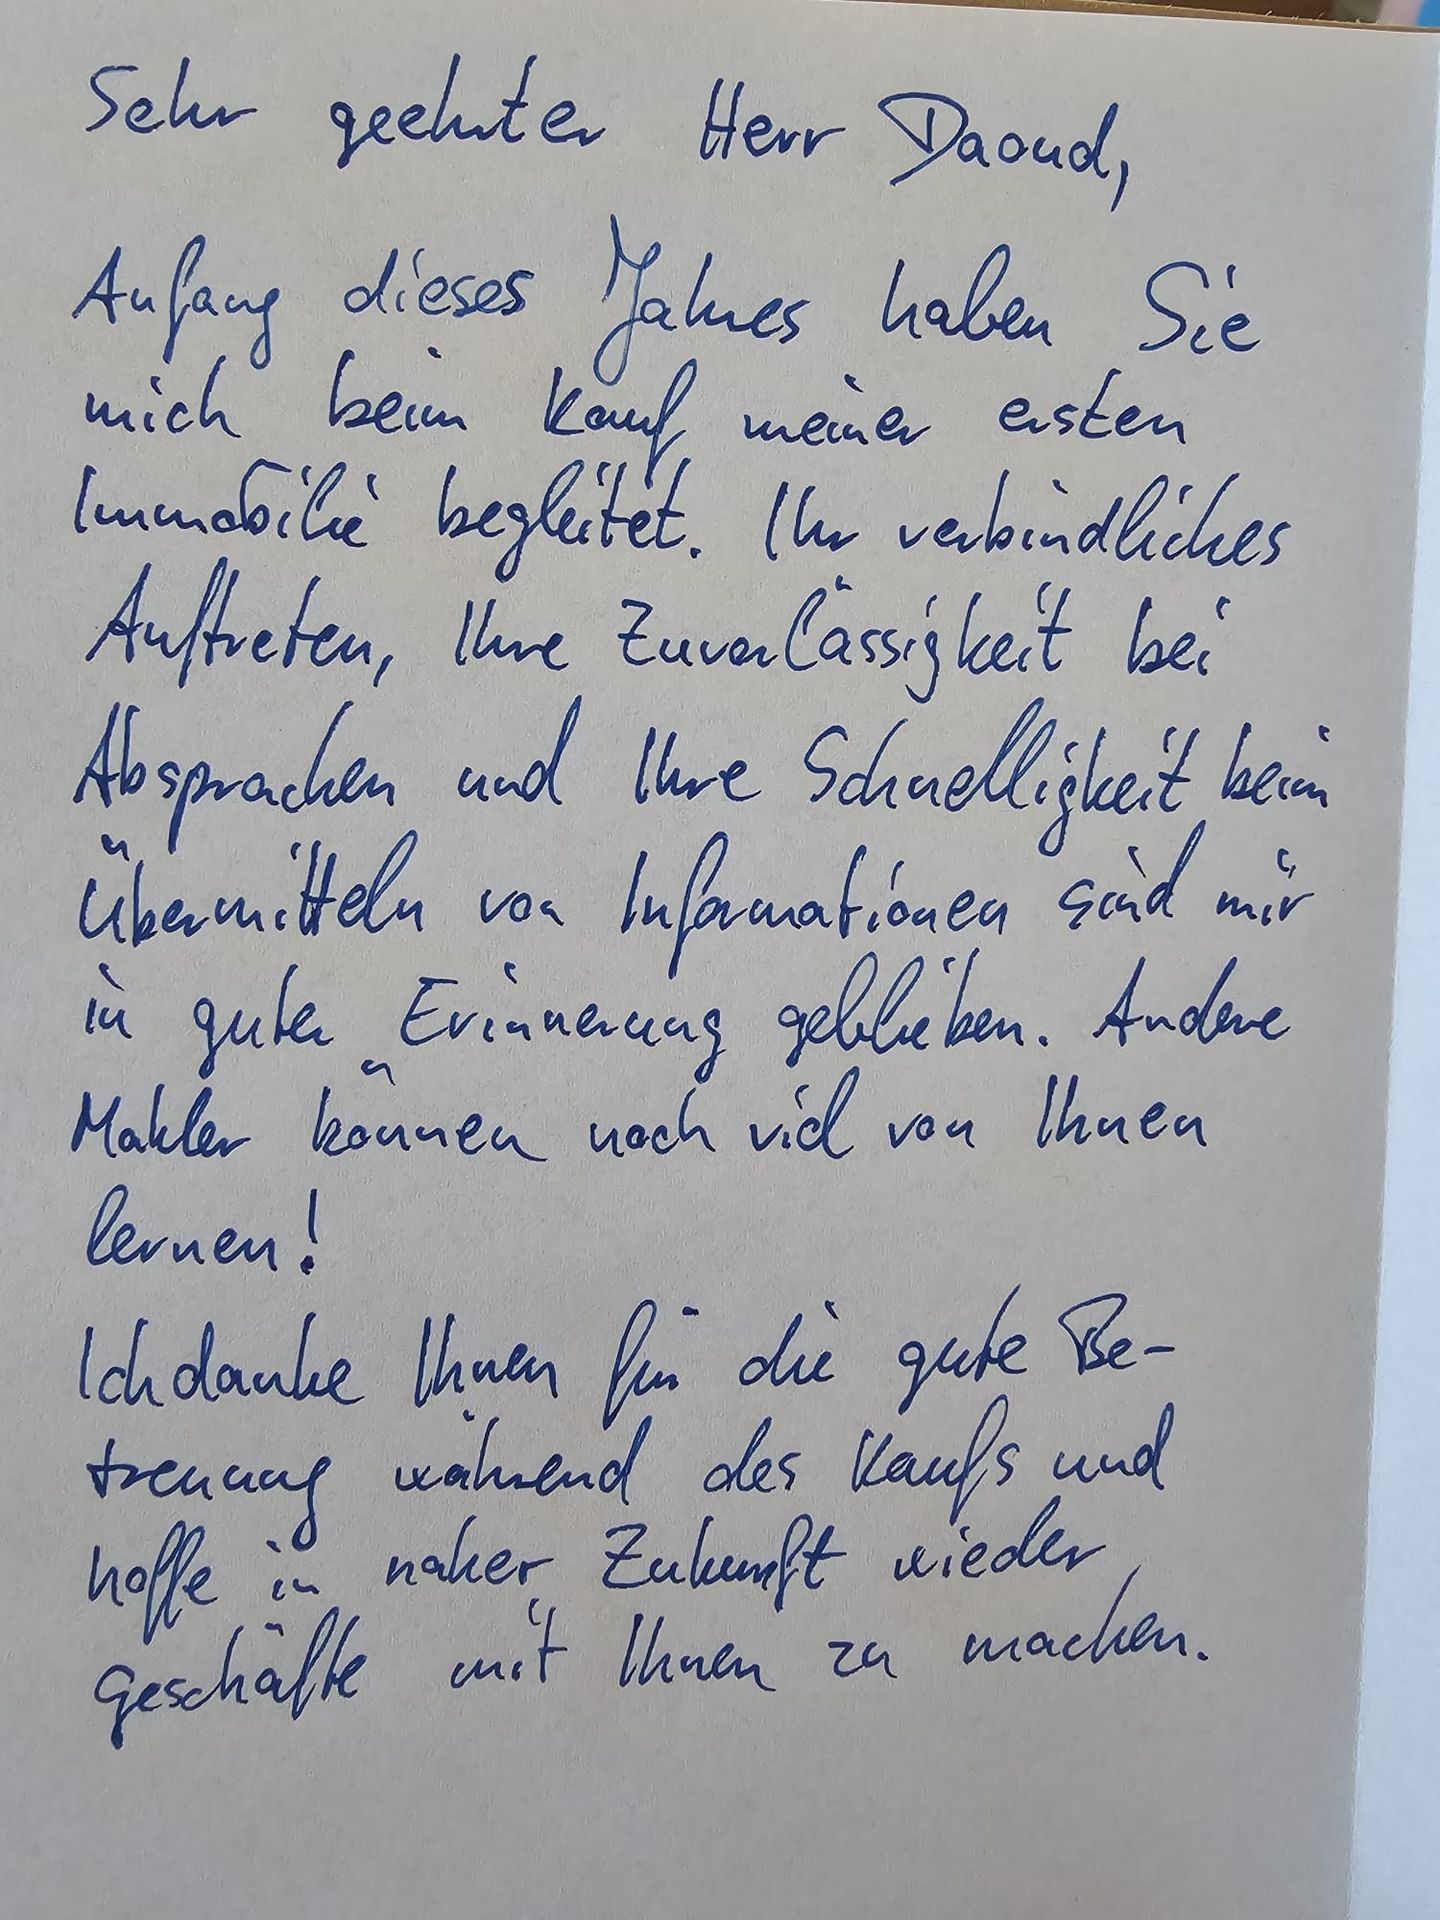 Sehr geehrter Herr Daoud,
Anfang dieses Jahres haben Sie
mich beim Kauf meiner ersten
Immobilie begleitet. Ihr verbindliches
Auftreten, Ihre Zuverlässigkeit bei
Absprachen und Ihre Schnelligkeit beim
Übermitteln von Informationen sind mir
in guter Erinnerung geblieben. Andere
Makler können noch viel von Ihnen
lernen!
Ich danke Ihnen für die gute Be-
treuung während des Kaufs und
hoffe in naher Zukunft wieder
Geschäfte mit Ihnen zu machen.